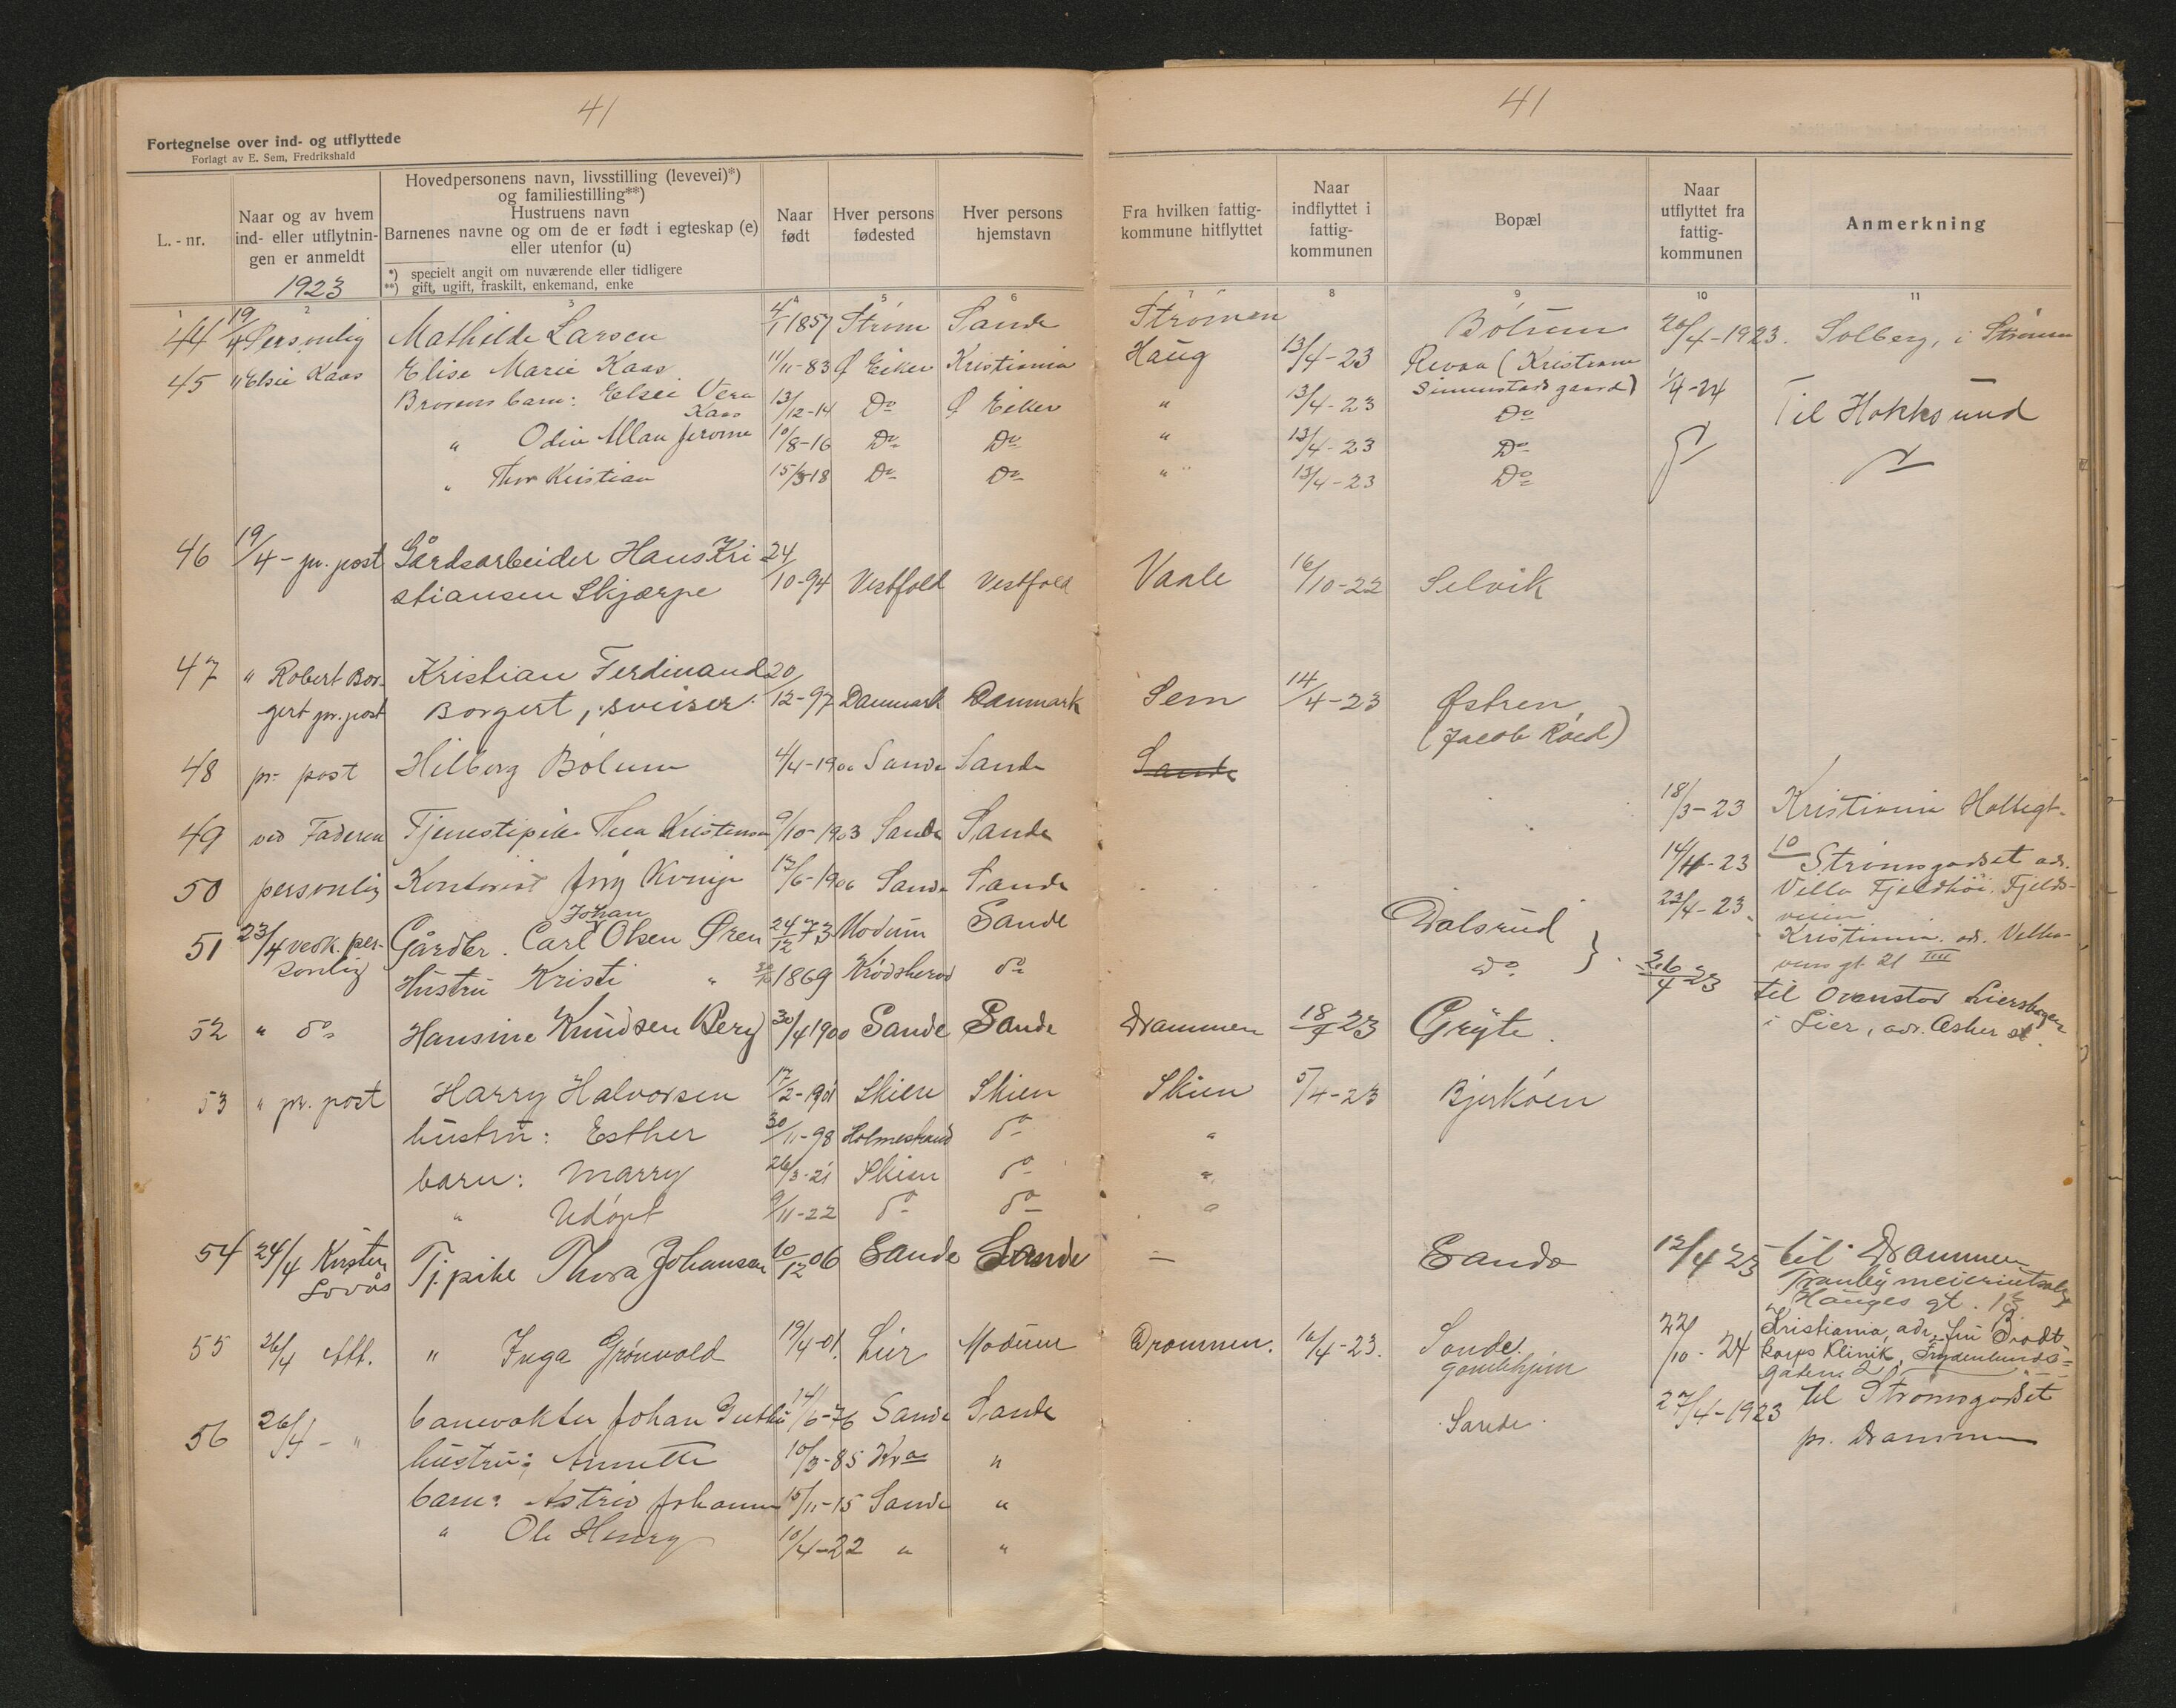 41
41
Fortegnelse over ind- og utflyttede
Forlagt av E. Sem, Fredrikshald
L.-nr.
Naar og av hvem ind- eller utflytnin-gen er anmeldt
1923
Hovedpersonens navn, livsstilling (levevei)*)
og familiestilling**)
Hustruens navn
Barnenes navne og om de er født i egteskap (e)
eller utenfor (u)
*) specielt angit om nuværende eller tidligere
**) gift, ugift, fraskilt, enkemand, enke
Naar født
Hver persons fødested
Hver persons hjemstavn
Fra hvilken fattig-kommune hitflyttet
Naar indflyttet i fattig-kommunen
Bopæl
Naar utflyttet fra fattig-kommunen
Anmerkning
1 2 3 4 5 6 7 8 9 10 11
44 19/4 Personlig Mathilde Larsen 4/1 1857 Strøm Sande Strømmen Bólum 20/4-1923. Solberg, i Strømm
45 " Elsie Kaas Elise Marie Kaas 11/11-83 Ø Eiker Kristiania Haug 13/4-23 Revaa (Kristiane
Simenstads gaard) 1/4-24
Brorens barn: Elsei Vera Kaas 13/12-14 Do Ø Eiker " 13/4-23 Do Til Hokksund
" Odin Allan Jerome 10/8-16 Do Do " 13/4-23 Do
" Thor Kristian 15/3-18 Do Do " 13/4-23 Do
46 19/4- pr. post Gårdsarbeider Hans Kri-
stiansen Skjærpe 24/10-94 Vestfold Vestfold Vaale 16/10-22 Selvik
47 " Robert Bor-
gert pr. post
Kristian Ferdinand
Borgert, sveiser. 20/12-97 Danmark Danmark Sem 14/4-23 Østren
(Jacob Róed)
48 pr. post Hilborg Bólum 4/4-1900 Sande Sande Sande 18/3-23 Kristiania Holtegt.
10
49 ved Faderen Tjenestepike Thea Kristensen 9/10-1903 Sande Sande 14/4-23 Strømsgodset ad.
Villa Fjeldhói, Fjelds-
veien
50 personlig Kontorist 17/6-1900 Sande Sande 22/4-23 Kristiania. ad.
gt. 21 IIII
51 23/4 vedk. per-
sonlig
Gårdbr. Carl Johan Olsen Øren 24/12 73 Modum Sande Dalsrud
Hustru Kristi " 1869 Krødsherad do Do 26/4 23 til Ovenstad Lierskogen
i Lier, adr. Asker st.
52 " do Hansine Knudsen Berg 30/4 1900 Sande Sande Drammen 18/4 23 Grýte.
53 " pr. post Harry Halvorsen 17/2-1901 Skien Skien Skien 5/4-23 Bjerkóen
hustru: Esther 30/11-98 Holmestrand do "
barn: Marry 26/3-21 Skien do "
" Udópt 9/11-22 do do "
54 24/4 Kirsten
Lovås
Tj.pike Thora Johansen 10/12 06 Sande Sande — Sande 12/4 23 til Drammen
Tranby meieriutsalg
Hauges gt. 13
55 26/4 Att. " Inga Grønvold 19/4-01 Lier Modum Drammen. 16/4-23. Sande
gamlehjem 22/10-24 Kristiania, adr. frú Brodt-
korps Klinik, Frydenlunds-
gaten. 2
56 26/4 - " banevokter Johan 14/6-76 Sande Sande Sande 27/4-1923 til Strømsgodset
pr. Drammen
hustru: Annette 10/3-85 Kra "
barn: Astrid Johanne 15/11-15 Sande "
" Ole Henry 10/4-22 " "